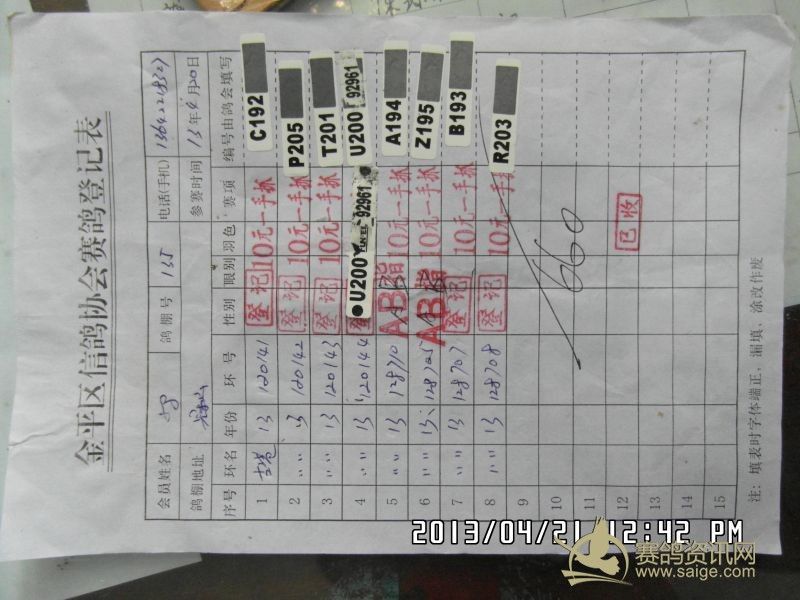 金平区信鸽协会赛鸽登记表
会员姓名 鸽棚号 135 电话(手机)
鸽棚地址 参赛时间 13年4月20日
序号 环名 年份 环号 性别 眼别 羽色 赛项 编号由鸽会填写
1 13 120141 登记 10元一手抓 C192
2 〃〃 13 120142 登记 10元一手抓 P205
3 〃〃 13 120143 登记 10元一手抓 T201
4 〃〃 13 120144 U200 92961 U200 92961
5 〃〃 13 AB 10元一手抓 A194
6 〃〃 13 128725 AB 10元一手抓 Z195
7 〃〃 13 128707 登记 10元一手抓 B193
8 〃〃 13 128708 登记 10元一手 R203
9
10 660
11
12 已收
13
14
15
注：填表时字体端正，漏填、涂改作废
2013/04/21 12:42 PM
赛鸽资讯网
www.saige.com